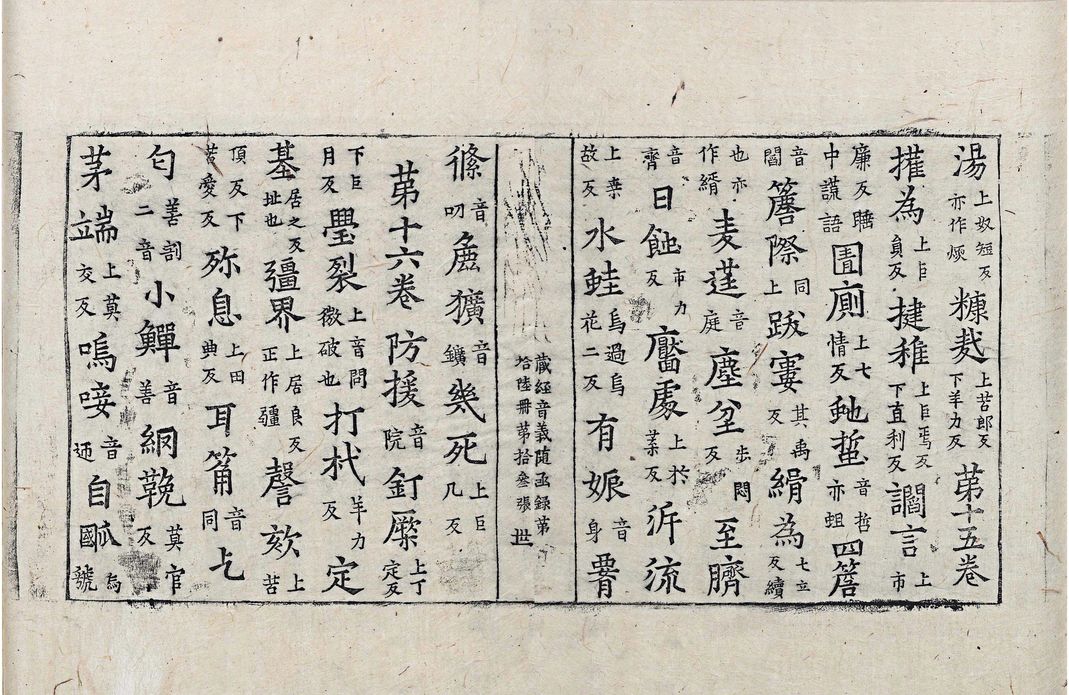 湯上奴短反亦作煗糠麸上苦郎反下羊力反第十五卷
攉為上巨負反揵稚上巨焉反下直利反讇言上市
廉反睡中謊語圊廁上七情反虵蜇音哲亦蛆四簷
音閻簷際同上跋窶其禹反縎為七立反續
也亦作緝麦莛音庭塵坌步悶反至臍
音齊日蝕市力反靨處上於葉反泝流
上桒故反水蛙烏過烏花二反有娠音身
藏經音義隨函録第拾陸冊第拾叁張 世
絛音叨麁獷音鑛幾死上巨几反
第十六卷防援音院釘㯕上丁定反
下巨月反璺裂上音問微破也打杙羊力反定
基居之反址也彊界上居良反正作疆謦欬上苦
頂反下苦愛反殄息上田典反耳筩音同乞
匄善割二音小鱓音善䋄鞔莫官反
茅端上莫交反嗚唼音迊自䤥為號